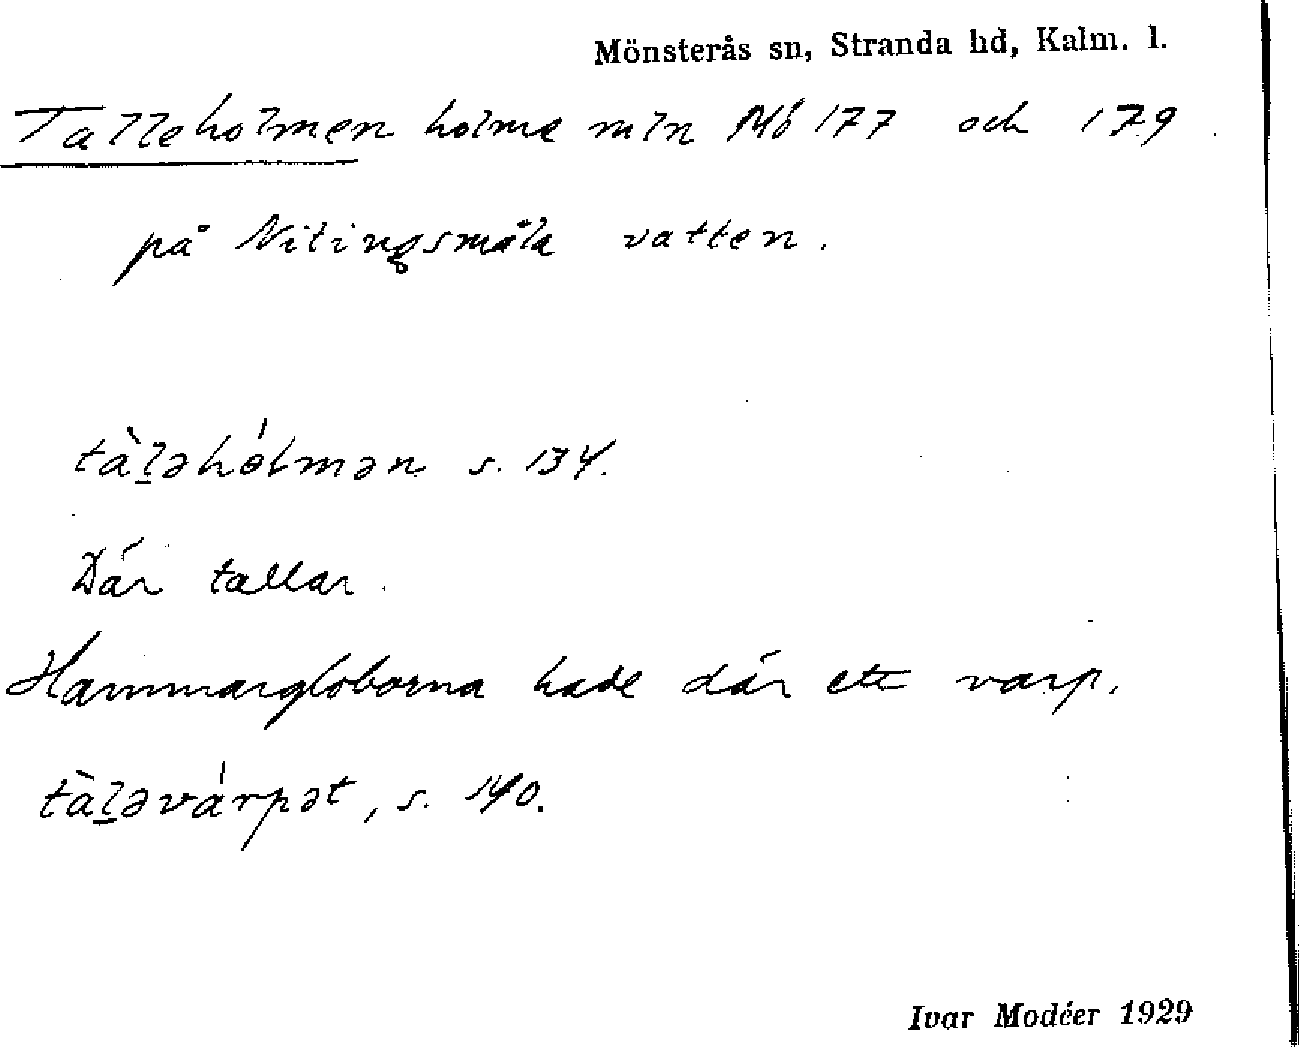 Mönsterås sn, Stranda hd, Kalm. l.
Talleholmen holme mln Mö 177 och 179.
på Nitingsmåla vatten.
tàl̲əhólmən s. 134.
Där tallar.
Hammargloborna hade där ett varp.
tàl̲əvárpət, s. 140.
Ivar Modéer 1929